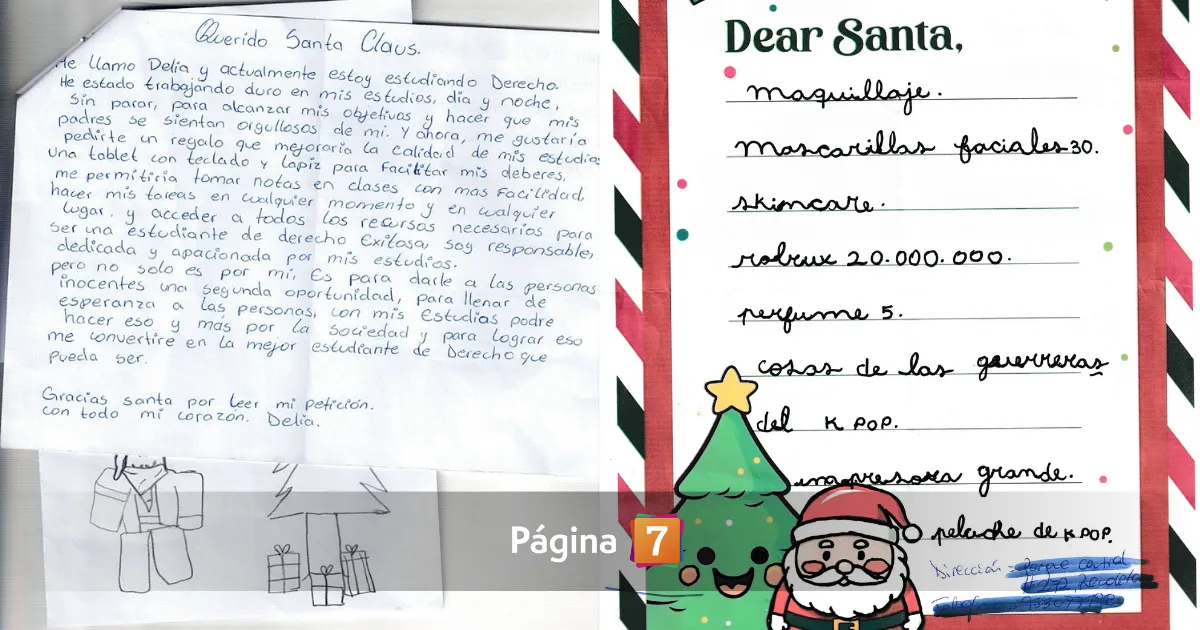 Querido Santa Claus.
Me llamo Delia y actualmente estoy estudiando Derecho.
He estado trabajando duro en mis estudios, día y noche,
Sin parar, para alcanzar mis objetivos y hacer que mis
padres se sientan orgullosos de mi. Y ahora, me gustaría
pedirte un regalo que mejoraría la calidad de mis estudios
una tablet con teclado y lapiz para facilitar mis deberes,
me permitiria tomar notas en clases con mas facilidad,
hacer mis tareas en cualquier momento y en cualquier
lugar. y acceder a todos los recursos necesarios para
ser una estudiante de derecho Exitosa, soy responsable,
dedicada y apacionada por mis estudios.
pero no solo es por mi, Es para darle a las personas
inocentes una segunda oportunidad, para llenar de
esperanza a las personas, con mis Estudias podre
hacer eso y más por la sociedad y para lograr eso
me convertire en la mejor estudiante de Derecho que
pueda ser.
Gracias santa por leer mi petición.
con todo mi corazón. Delia.
Dear Santa,
maquillaje.
mascarillas faciales 30.
skincare.
robux 20.000.000.
perfume 5.
cosas de las guerreras
del K POP.
impresora grande.
peluche de K POP.
Dirección
Página 7